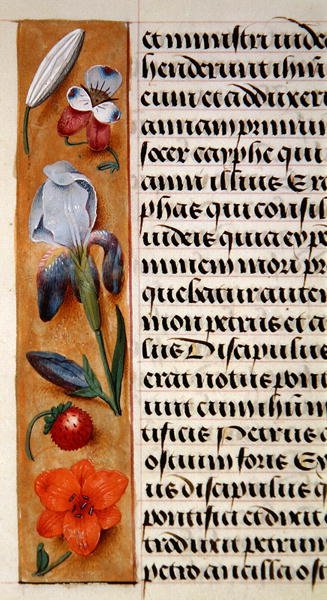 et ministri iude
henderunt ihm
eum et adduxer
annam primum
socer cayphe qui
anni illius Era
phas qui consil
iudeis quia expe
minem mori pr
quebatur autem
mon petrus et a
lius Discipulus
erat notus pont
iuit cum ihu
tificis Petrus
ostium foris Ex
us discipulus q
pontifici et dixit
traduxit petrum
petro ancilla ost